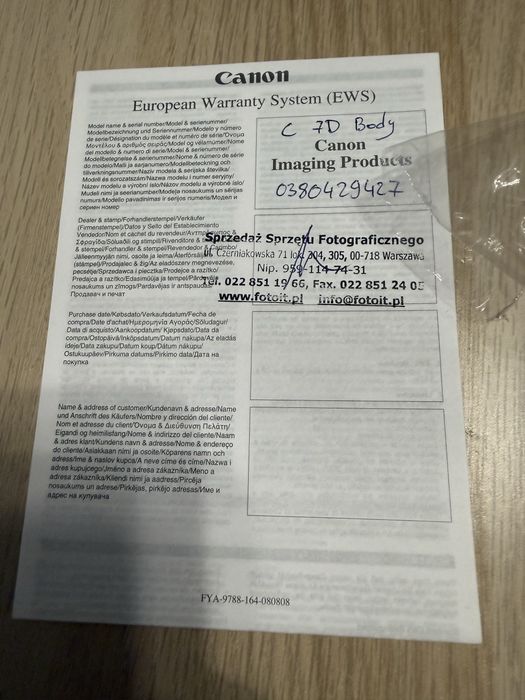 Canon
European Warranty System (EWS)
Model name & serial number/Model & serienummer/
Modelbezeichnung und Seriennummer/Modelo y número
de serie/Désignation du modèle et numéro de série/Όνομα
Μοντέλου & αριθμός σειράς/Model og
del modello & numero di serie/Model & serienummer/
Modelbetegnelse & serienummer/Nome & número de série
do modelo/Malli ja sarjanumero/Modellbeteckning och
tillverkningsnummer/Naziv modela & serijska številka/
Modell és sorozatszám/Nazwa modelu i numer seryjny/
Název modelu a výrobní číslo/Názov modelu a výrobné číslo/
Mudeli nimi ja seerianumber/Modeļa nosaukums un sērijas
numurs/Modelio pavadinimas ir serijos numeris/Модел и
сериен номер
C 7D Body
Canon
Imaging Products
0380429427
Dealer & stamp/Forhandlerstempel/Verkäufer
(Firmenstempel)/Datos y Sello del Establecimiento
Vendedor/Nom et cachet du revendeur/
Sprzedaż Sprzętu Fotograficznego
ul. Czerniakowska 71 lok. 304, 305, 00-718 Warszawa
Nip. 959-114-74-31
Tel. 022 851 19 66, Fax. 022 851 24 05
www.fotoit.pl info@fotoit.pl
Purchase date/Købsdato/Verkaufsdatum/Fecha de
compra/Date d'achat/Ημερομηνία Αγοράς/Söludagur/
Data di acquisto/Aankoopdatum/ Kjøpsdato/Data da
compra/Ostopäivä/Inköpsdatum/Datum nakupa/Az eladás
ideje/Data zakupu/Datum koupě/Dátum nákupu/
Ostukuupäev/Pirkuma datums/Pirkimo data/Дата на
покупка
Name & address of customer/Kundenavn & adresse/Name
und Anschrift des Käufers/Nombre y dirección del cliente/
Nom et adresse du client/Όνομα & Διεύθυνση Πελάτη/
Eigandi og heimilisfang/Nome & indirizzo del cliente/Naam
& adres klant/Kundens navn & adresse/Nome & endereço
do cliente/Asiakkaan nimi ja osoite/Köparens namn och
adress/Ime & naslov kupca/A vevő címe és címe/Nazwa i
adres kupującego/Jméno a adresa zákazníka/Meno a
adresa zákazníka/Kliendi nimi ja aadress/Pircēja
nosaukums un adrese/Pirkėjas, pirkėjo adresas/Име и
адрес на купувача
FYA-9788-164-080808